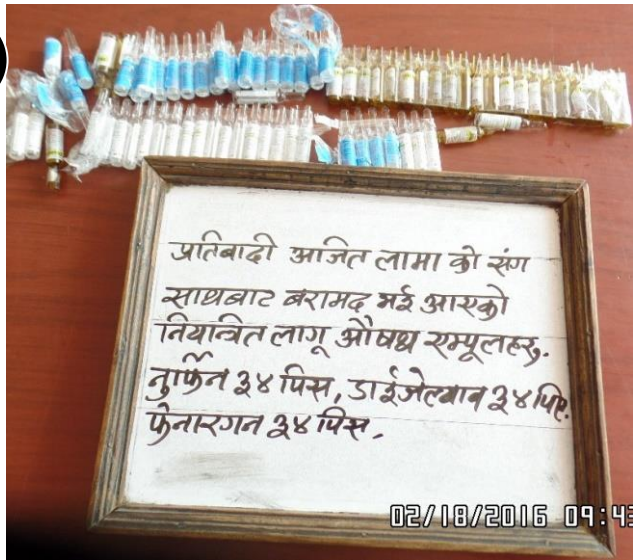 प्रतिबादी अजित लामा को संग
साथबाट बरामद भई आएको
नियन्त्रित लागू औषध एम्पूलहरु.
नुर्फिन ३४ पिस, डाईजेत्बाब ३४ पिए.
फेनारगन ३४ पिस.
02/18/2016 09:43